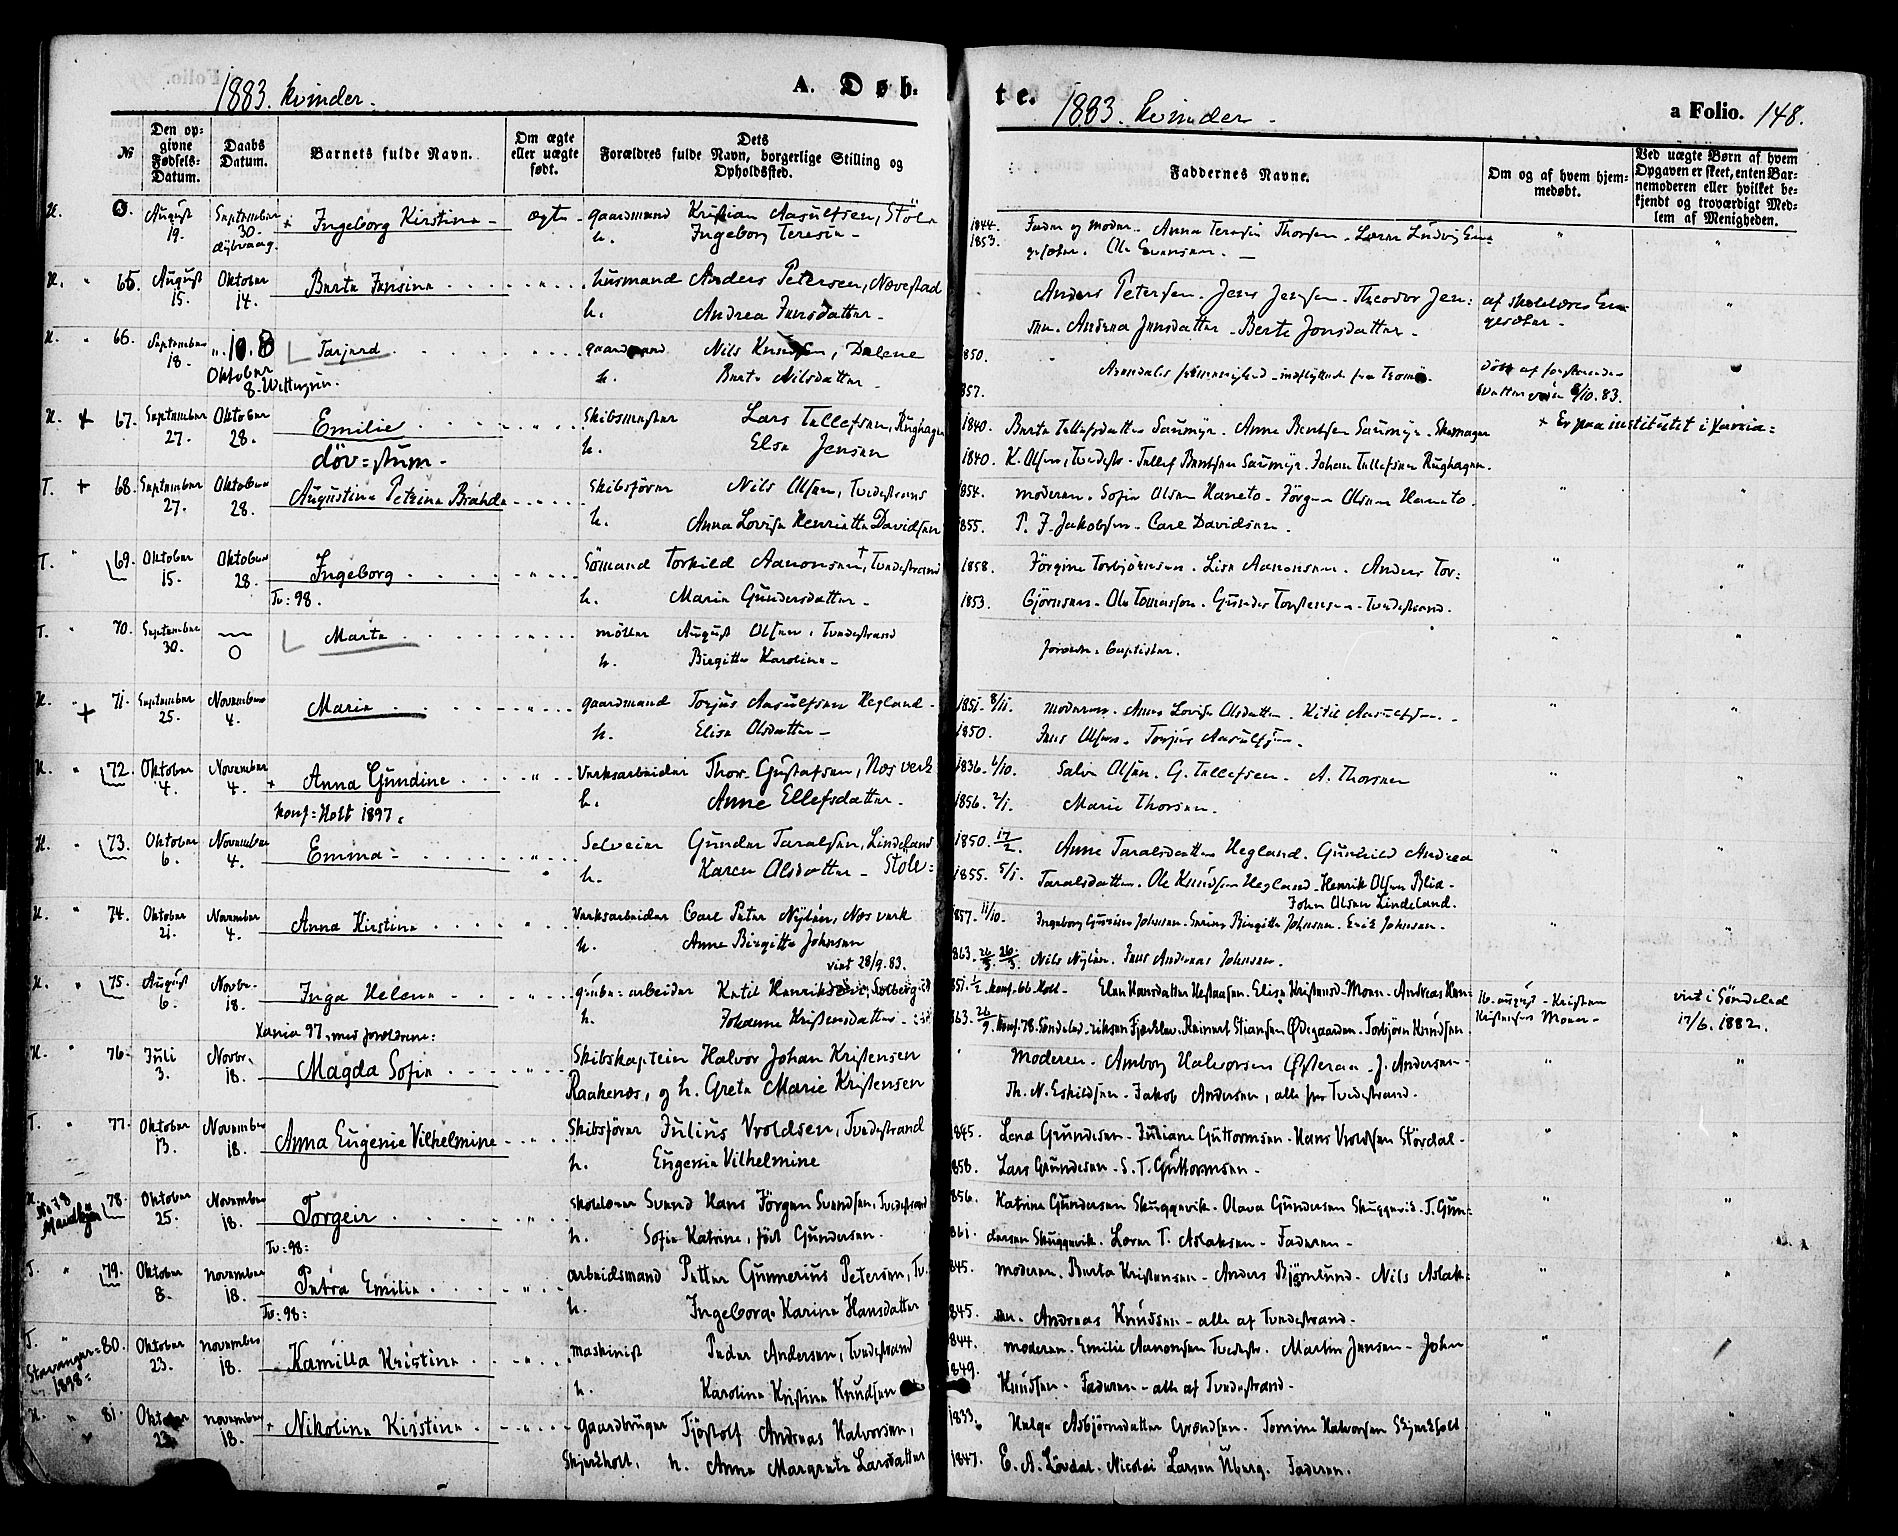 1883. kvinder.
A. Døb-
te.
1883. kvinder -
a Folio. 148.
№
Den opgivne Fødsels-Datum.
Daabs Datum.
Barnets fulde Navn.
Om ægte eller uægte født.
Dets Forældres fulde Navn, borgerlige Stilling og Opholdssted.
Faddernes Navne.
Om og af hvem hjemmedøbt.
Ved uægte Børn af hvem Opgaven er skeet, enten Barnemoderen eller hvilket bekjendt og troværdigt Medlem af Menigheden.
H. August 19. September 30. Ingeborg Kirstine - ægte gaardmand Kristian Aasulfsen, Støle
h. Ingeborg Teresia -
1844. Fader og moder. Anna Teresia Thorsen. Lærer Ludvig
1853. Ole Evensen. -
H. " 65. August 15. Oktober 14. Berte Jensine husmand Anders Petersen, Nævestad
h. Andrea Jensdatter -
Anders Petersen. Jens Jensen. Theodor Jen:
sen. Andrea Jensdatter - Berte Jonsdatter.
af skolelærer
H. " 66. September 18. Oktober 8. Tarjerd gaardmand Nils Knudsen, Dalene
h. Berte Nilsdatter -
1850.
1857.
Arendals frimenighed - indflyttede fra Tromø.
8/10. 83.
H. + 67. September 27. Oktober 28. Emilie Skibsmester Lars Tellefsen, Rughagen
døv=stum - h. Else Jensen
1840. Berte Tellefsdatter Saumyr. Anne Berntsen Saumyr. Skomager
1840. K. Olsen, Tvedestr - Tellef Berntsen Saumyr. Johan Tellefsen Rughagen.
+ Er paa institutet i Xania=
T. + 68. September 27. Oktober 28. Augustine Petrine Brahde Skibsfører Nils Olsen, Tvedestrand
h. Anna Lovise Henriette Davidsen
1854. moderen. Sofie Olsen Haneto. Jørgen Olsen Haneto.
1855. P. J. Jakobsen. Carl Davidsen.
T. " 69. Oktober 15. Oktober 28. Ingeborg Sømand Torkild Aanonsen, Tvedestrand
Tv: 98. h. Marie Gundersdatter -
1858. Jørgine Torbjørnsen. Lise Aanonsen. Anders Tor:
1853. bjørnsen. Ole Tomassen. Gunder Torstensen. Tvedestrand.
T. " 70. September 30. Marte møller August Olsen, Tvedestrand
h. Birgitte Karoline -
Baptister.
H. + 71. September 25. November 4. Marie gaardmand Torjus Aasulfsen Hegland -
h. Elise Olsdatter -
1851. 8/11. moderen. Anne Lovise Olsdatter. Kitil Aasulfsen.
1850. Jens Olsen. Torjus Aasulfsen.
H. " 72. Oktober 4. November 4. Anna Gundine Verksarbeider Thor Gustafsen, Næs verk
Konf: Holt 1897. h. Anne Ellefsdatter.
1836. 6/10. Salve Olsen. G. Tellefsen. A. Thorsen
1856. 2/1. Marie Thorsen.
H. " 73. Oktober 6. November 4. Emma - Selveier Gunder Taralsen, Lindeland
h. Karen Olsdatter - Støle=
1850. 17/2. Anne Taralsdatter Hegland. Gunhild Andrea
1855. 5/1. Taralsdatter. Ole Knudsen Hegland. Henrik Olsen Blie -
John Olsen Lindeland.
H. " 74. Oktober 21. November 4. Anna Kirstine Verksarbeider Carl Peter Nylén, Næs verk
h. Anne Birgitte Johnsen
viet 28/9. 83.
1857. 11/10. Ingeborg Gurine Johnsen. Birgitte Johnsen. Erik Johnsen.
1863. Nils Nylén. Jens Andreas Johnsen.
H. " 75. August 6. Novbr. 18. Inga Helene grube=arbeider Ketil Henriksen, Solberg
Xania 97, med forældrene: h. Johanne Kristensdatter -
1851. 1/2. konf. 66. Holt Elen Hansdatter. Elise Kristensd. Moen. Andreas
1863. 26/9. konf. 78. Søndeled. Reinert Stiansen Ødegaarden. Torbjørn Knudsen
16. august - Kristen
Moen -
viet i Søndeled
17/6. 1882.
H. " 76. Juli 3. Novbr. 18. Magda Sofie Skibskaptein Halvor Johan Kristensen
Raakenes, og h. Grete Marie Kristensen
Moderen. Amborg Halvorsen Østeraa. J. Andersen.
Th. N. Eskildsen. Jakob Andersen, alle fra Tvedestrand.
T. " 77. Oktober 13. November 18. Anna Eugenie Vilhelmine Skibsfører Julius Vroldsen, Tvedestrand
h. Eugenie Vilhelmine
1845. Lena Gundersen. Juliane Guttormsen. Hans Vroldsen Stördal -
1858. Lars Gundersen. S. T. Guttormsen.
H. 78. Oktober 25. November 18. Torgeir skolelærer Svend Hans Jørgen Svendsen, Tvedestrand
Tv: 98: h. Sofie Katrine, født Gundersen.
1856. Katrine Gundersen Skuggevik. Olava Gundersen Skuggevik. T. Gun=
1861. dersen Skuggevik. Lærer T. Aslaksen. Faderen -
T. " 79. Oktober 8. november 18. Petra Emilie arbeidsmand Petter Gunnerius Petersen, Tv.
Tv: 98: h. Ingeborg Karine Hansdatter
1845. moderen. Berta Kristensen - Anders Bjørnlund. Nils Aslak=
1845. sen. Andreas Knudsen - alle af Tvedestrand.
T. " 80. Oktober 23. november 18. Kamilla Kristine maskinist Peder Andersen, Tvedestrand
Stavanger=
1898= h. Karoline Kristine Knudsen
1844. moderen. Emilie Aanonsen Tvedestr. Martin Jensen - John
1849. Knudsen. Faderen - alle af Tvedestrand.
H. " 81. Oktober 23. november 18. Nikoline Kirstine gaardbruger Tjøstolf Andreas Halvorsen,
Skjerkholt, h. Anne Margrete Larsdatter
1833. Helge Asbjørnsdatter Grændsen. Tomine Halvorsen Skjerkholt
1847. E. A. Lövdal. Nicolai Larsen Uberg. Faderen.